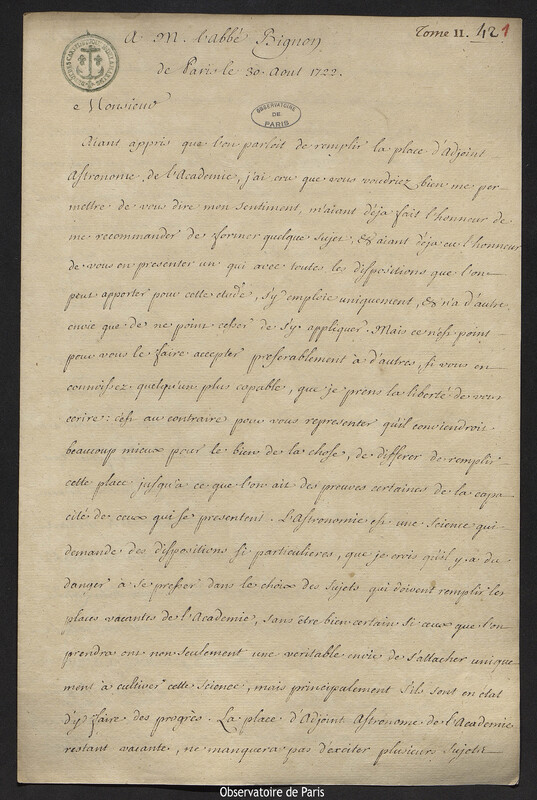 A M. l'abbé Bignon
Tome II. 421
de Paris le 30. Aout 1722.
Monsieur
OBSERVATOIRE
DE
PARIS
Aiant appris que l'on parloit de remplir la place d'Adjoint
Astronome de l'Academie, j'ai cru que vous voudriez bien me per-
mettre de vous dire mon sentiment, m'aiant deja fait l'honneur de
me recommander de former quelque sujet, & aiant deja eu l'honneur
de vous en presenter un qui avec toutes les dispositions que l'on
peut apporter pour cette etude, s'y emploie uniquement, & n'a d'autre
envie que de ne point cesser de s'y appliquer. Mais ce n'est point
pour vous le faire accepter preferablement à d'autres, si vous en
connoissez quelqu'un plus capable, que je prens la liberté de vous
ecrire: c'est au contraire pour vous representer qu'il conviendroit
beaucoup mieux pour le bien de la chose, de differer de remplir
cette place jusqu'a ce que l'on ait des preuves certaines de la capa-
cité de ceux qui se presentent. L'Astronomie est une science qui
demande des dispositions si particulieres, que je crois qu'il y a du
danger à se presser dans le choix des sujets qui doivent remplir les
places vacantes de l'Academie, sans être bien certain si ceux que l'on
prendra ont non seulement une veritable envie de s'attacher unique-
ment à cultiver cette science, mais principalement s'ils sont en etat
d'y faire des progrès. La place d'Adjoint Astronome de l'Academie
restant vacante, ne manquera pas d'exciter plusieurs sujets
Observatoire de Paris